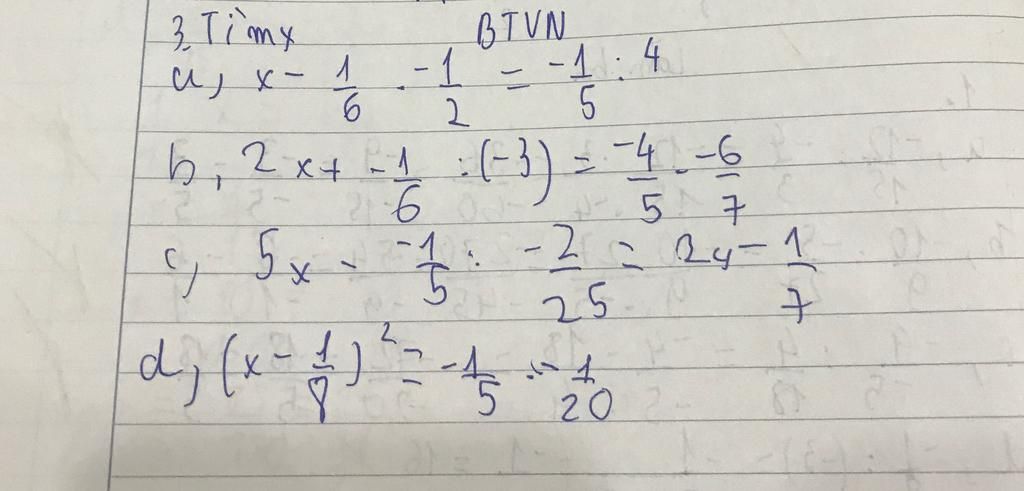 3. Tìm x BTVN
a, x - 1/6 . -1/2 = -1/5 : 4
b, 2x + -1/6 : (-3) = -4/5 . -6/7
c, 5x - -1/5 : -2/25 = 2x - 1/7
d, (x - 1/8)² = -1/5 : -1/20